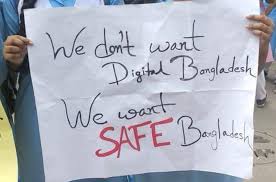 We don't want
Digital Bangladesh
We want
SAFE Bangladesh